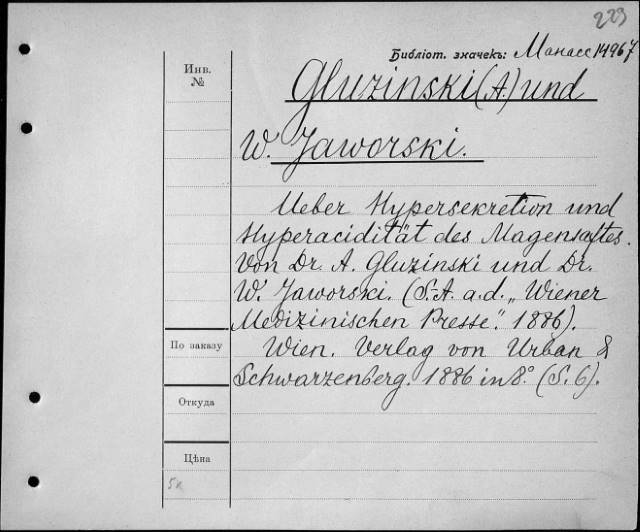 223
Библіот. значекъ: Манасс 14967
Инв.
№
Gluzinski (A.) und
W. Jaworski.
Ueber Hypersekretion und
Hyperacidität des Magensaftes.
Von Dr. A. Gluzinski und Dr.
W. Jaworski. (S.-A. a. d. „Wiener
Medizinischen Presse." 1886).
По заказу
Wien. Verlag von Urban &
Schwarzenberg. 1886 in 8.° (S. 6).
Откуда
Цѣна